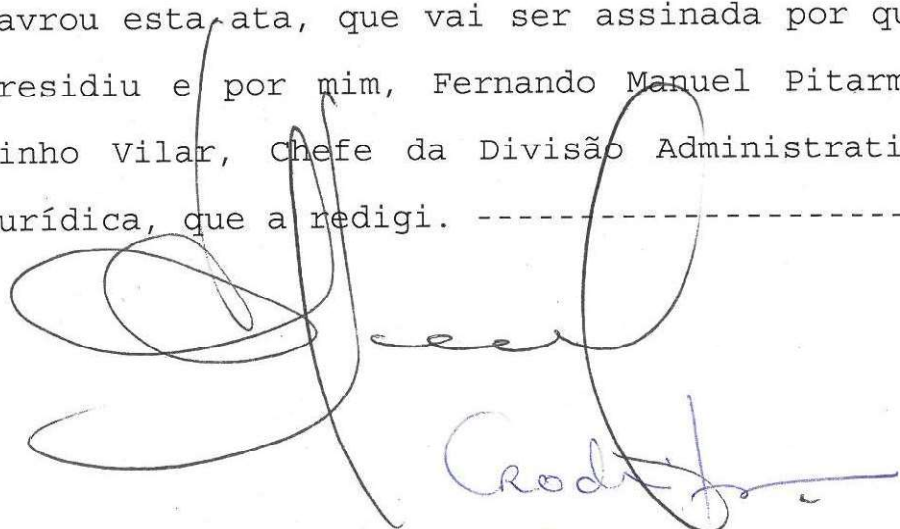 avrou esta ata, que vai ser assinada por qu
residiu e por mim, Fernando Manuel Pitarm
inho Vilar, Chefe da Divisão Administrati
urídica, que a redigi. ---------------------